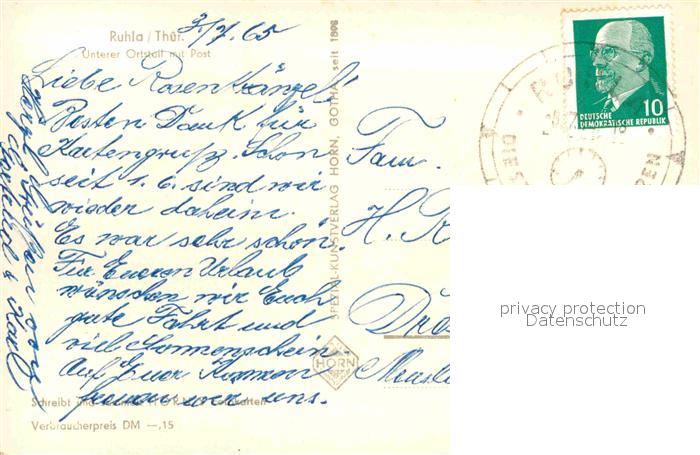 Ruhla / Thür.
Unterer Ortsteil mit Post
3./7. 65
Liebe Rosenkränzel!
Besten Dank für
Kartengruß. Schon
seit 1. 6. sind wir
wieder daheim.
Es war sehr schön.
Für Eueren Urlaub
wünschen wir Euch
gute Fahrt und
viel Sonnenschein.
Auf Euer Kommen
freuen wir uns.
Herzl. Grüßen von
Karl
Schreibt und
HORN
Verbraucherpreis DM —,15
SPEZIAL-KUNSTVERLAG HORN, GOTHA, seit 1896
HORN
Fam.
H. R
DEUTSCHE
DEMOKRATISCHE REPUBLIK
10
privacy protection
Datenschutz